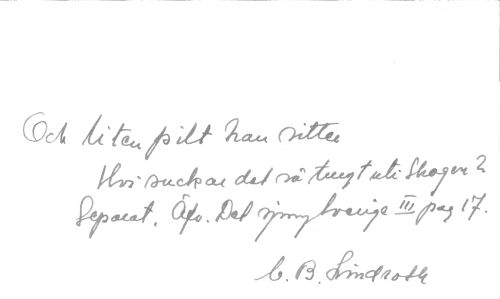 Och liten pilt han sitter
Hvi suckar det så tungt uti skogen?
Separat. Äfv. Det sjung Sverige III pag 17.
C. B. Lindroth